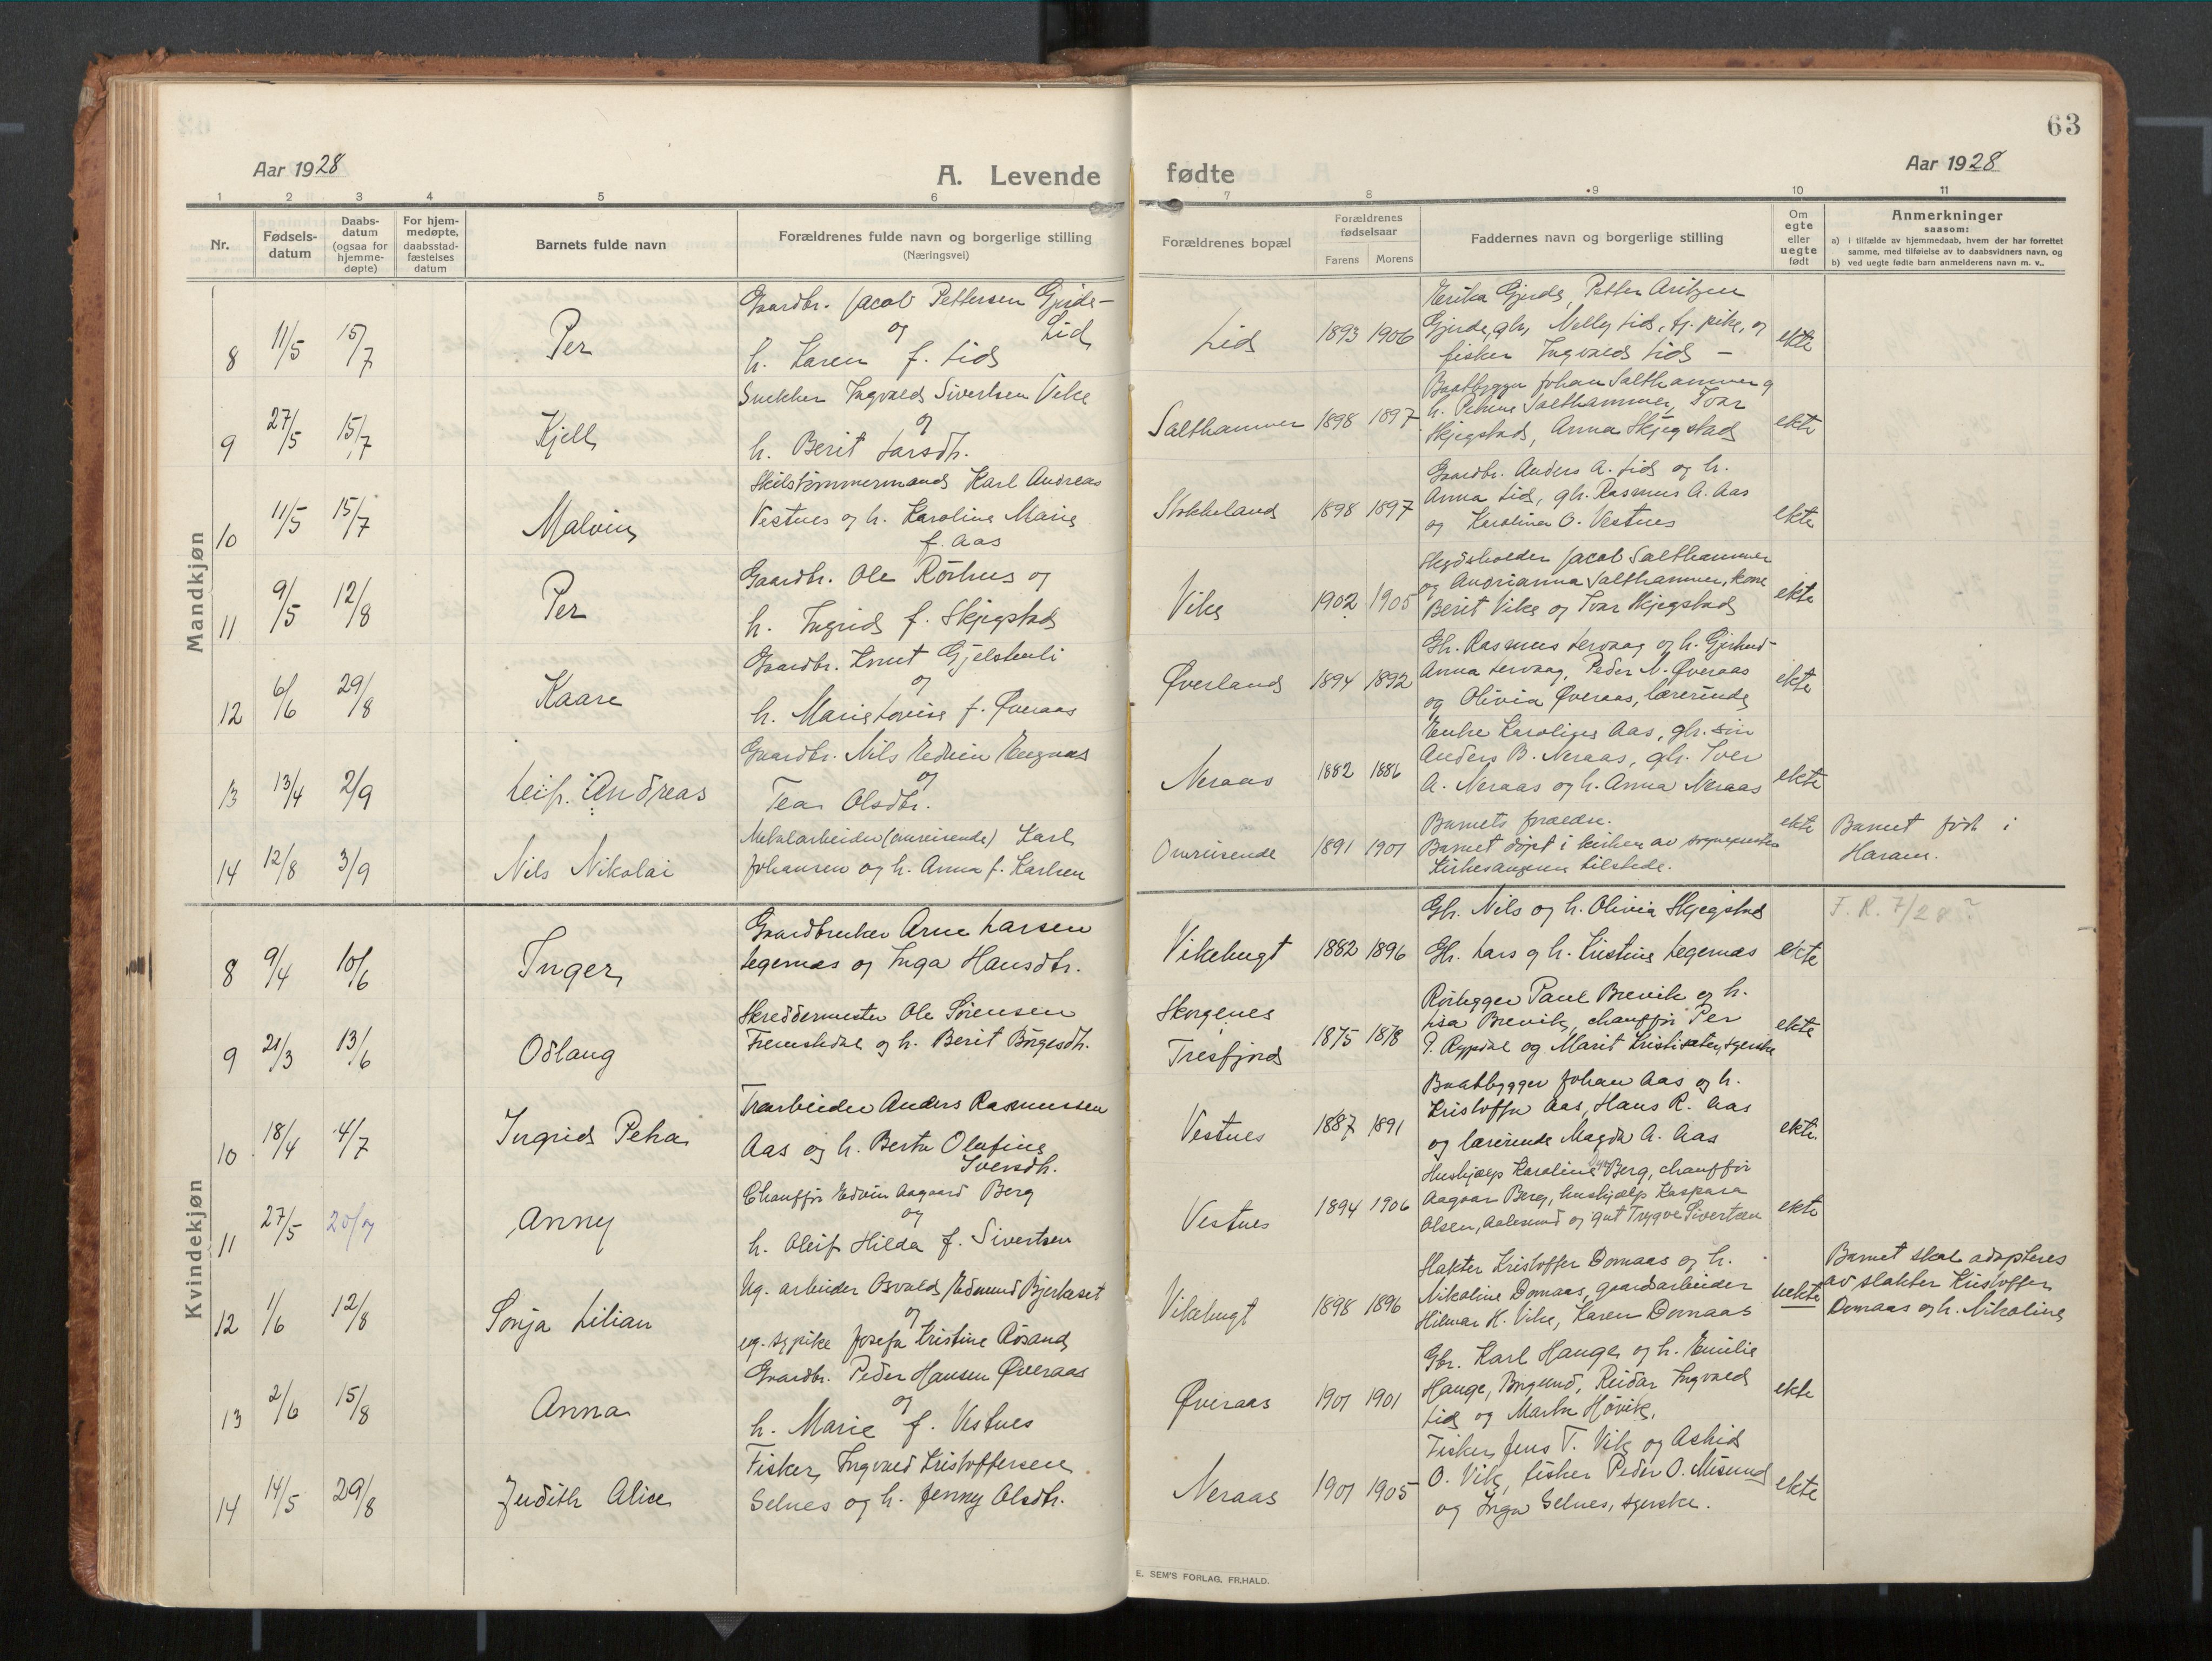 63
Aar 1928
A. Levende fødte
Aar 1928
1 2 3 4 5 6 7 8 9 10 11
Nr.
Fødsels-
datum
Daabs-
datum
(ogsaa for
hjemme-
døpte)
For hjem-
medøpte,
daabsstad-
fæstelses
datum
Barnets fulde navn
Forældrenes fulde navn og borgerlige stilling
(Næringsvei)
Forældrenes bopæl
Forældrenes
fødselsaar
Farens Morens
Faddernes navn og borgerlige stilling
Om
egte
eller
uegte
født
Anmerkninger
saasom:
a) i tilfælde av hjemmedaab, hvem der har forrettet
samme, med tilføielse av to daabsvidners navn, og
b) ved uegte fødte barn anmelderens navn m. v..
Mandkjøn
8 11/5 15/7 Per
Gaardbr. Jacob Pettersen Gjerde-
og Lid
h. Karen f. Lid
Lid 1893 1906
Erika Gjerde, Petter
Gjerde, gbr, Nelly Lid, tj. pike, og
fisker Ingvald Lid -
ekte
9 27/5 15/7 Kjell
Snekker Ingvald Sivertsen Vike
og
h. Berit Larsdtr.
Salthammer 1898 1897
Baatbygger Johan Salthammer og
h. Petrine Salthammer, Ivar
Skjegstad, Anna Skjegstad
ekte
10 11/5 15/7 Malvin
Skibstømmermand Karl Andreas
Vestnes og h. Karoline Marie
f. Aas
Stokkeland 1898 1897
Gaardbr. Anders A. Lid og h.
Anna Lid, gbr. Rasmus A. Aas
og Karoline O. Vestnes
ekte
11 9/5 12/8 Per
Gaardbr. Ole Rørhus og
h. Ingrid f. Skjegstad
Vike 1902 1905
Skydsholder Jacob Salthammer
og Andrianna Salthammer, kone
Berit Vike og Ivar Skjegstad
ekte
12 6/6 29/8 Kaare
Gaardbr. Knut Gjelstenli
og
h. Marie Lovise f. Øveraas
Øverland 1894 1892
Gbr. Rasmus Lervaag og h. Gjertrud-
Anna Lervaag, Peder N. Øveraas
og Olivia Øveraas, lærerinde
ekte
13 13/4 2/9 Leif. Andreas
Gaardbr. Nils Edvin Engnæs
og
Tea Olsdtr.
Neraas 1882 1886
Enke Karoline Aas, gbr. søn
Anders B. Neraas, gbr. Iver
A. Neraas og h. Anna Neraas
ekte
14 12/8 3/9 Nils Nikolai
Metalarbeider (omreisende) Karl
Johansen og h. Anna f. Karlsen
Omreisende 1891 1901
Barnets forældre.
Barnet døpt i kirken av sognepresten
Kirkesangeren tilstede.
ekte
Barnet født i
Haram.
Kvindekjøn
8 9/4 10/6 Inger
Gaardbruker Arne Larsen
Legernæs og Inga Hansdtr.
Vikebugt 1882 1896
Gbr. Nils og h. Olivia Skjegstad
Gbr. Lars og h. Kristine Legernæs
ekte
F. R. 7/28 ?
9 21/3 13/6 Odlaug
Skreddermester Ole Sørensen
Fremstedal og h. Berit Børgesdtr.
Skorgenes
Tresfjord
1875 1878
Rørlegger Paul Brevik og h.
Lisa Brevik, chauffør Per
P. Rypdal og Marit Kristisæter, syerske
ekte
10 18/4 4/7 Ingrid Petra
Træarbeider Anders Rasmussen
Aas og h. Berta Olufine
Iversdtr.
Vestnes 1887 1891
Baatbygger Johan Aas og h.
Kristoffa Aas, Hans R. Aas
og lærerinde Magda A. Aas
ekte.
11 27/5 Anny
Chauffør Edvin Aagaard Berg
og
h. Oleif Hilda f. Sivertsen
Vestnes 1894 1906
Hushjælp Karoline Berg, chauffør
Aagaar Berg, hushjælp Kaspara
Olsen, Aalesund og gut Trygve Sivertsen
ekte
12 1/6 12/8 Sonja Lilian
Ug. arbeider Osvald Edmund Bjerkeset
og
ug. sypike Josefa Kristine Røsand
Vikebugt 1898 1896
Slakter Kristoffer Domaas og h.
Nikoline Domaas, gaardarbeider
Hilmar H. Vike, Karen Domaas
uekte
Barnet skal adopteres
av slakter Kristoffer
Domaas og h. Nikoline
13 2/6 15/8 Anna
Gaardbr. Peder Hansen Øveraas
og
h. Marie f. Vestnes
Øveraas 1901 1901
Gbr. Karl Hauge og h. Emilie
Hauge, Borgund, Reidar Ingvald
Lid og Marta Høvik.
ekte
14 14/5 29/8 Judith Alice
Fisker Ingvald Kristoffersen
Selnes og h. Jenny Olsdtr.
Neraas 1901 1905
Fisker Jens T. Vik og Astrid
O. Vik, fisker Peder O. Misund
og Inga Selnes, syerske.
ekte
E. SEM'S FORLAG, FR.HALD.